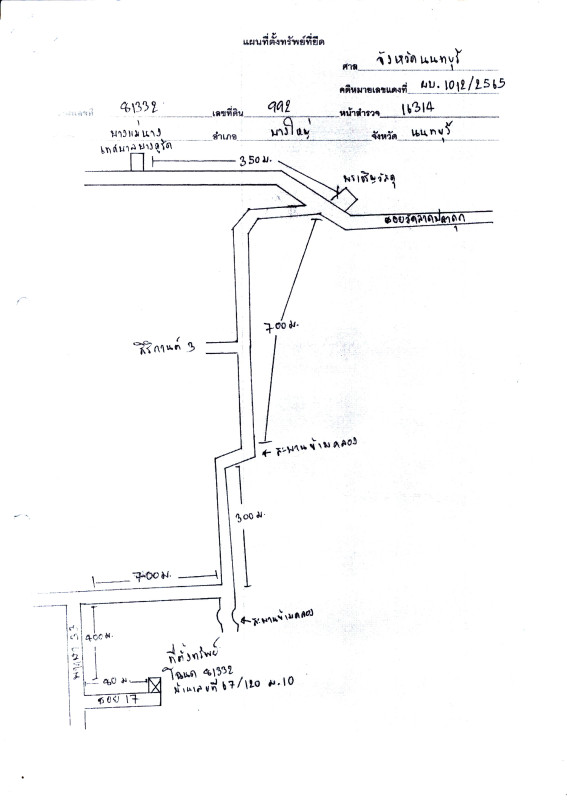 แผนที่ตั้งทรัพย์ที่ยึด
ศาล จังหวัดนนทบุรี
คดีหมายเลขแดงที่ ผบ.1012/2565
81332 เลขที่ดิน 992 หน้าสำรวจ 16314
บางแม่นาง อำเภอ บางใหญ่ จังหวัด นนทบุรี
350 ม.
ซอยวัดลาดปลาดุก
700 ม.
สิริกานต์ 3
สะพานข้ามคลอง
300 ม.
700 ม.
สะพานข้ามคลอง
400 ม.
ที่ตั้งทรัพย์
โฉนด 81332
บ้านเลขที่ 67/120 ม.10
80 ม.
ซอย 17